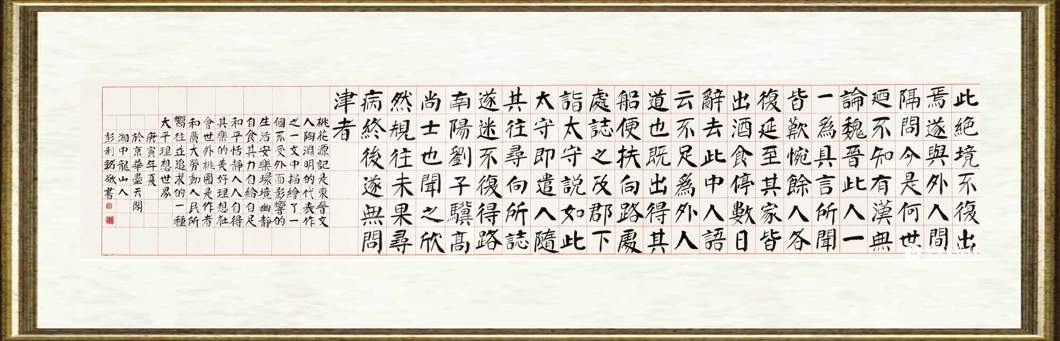 此絶境不復出
焉遂與外人間
隔問今是何世
廼不知有漢無
論魏晉此人一
一為具言所聞
皆歎惋餘人各
復延至其家皆
出酒食停數日
辭去此中人語
云不足為外人
道也既出得其
船便扶向路處
處誌之及郡下
詣太守說如此
太守即遣人隨
其往尋向所誌
遂迷不復得路
南陽劉子驥高
尚士也聞之欣
然規往未果尋
病終後遂無問
津者
桃花源記是東晉文
人陶淵明的代表作
之一文中描繪了一
個不受外面影響的
生活安樂環境幽靜
自食其力自給自足
和平恬靜人人自得
其樂的美好理想社
會世外桃園是作者
和廣大勞動人民所
嚮往並追求的一種
太平理想世界
庚寅年夏
於京華靈天閣
湘中龍山人
彭利銘敬書